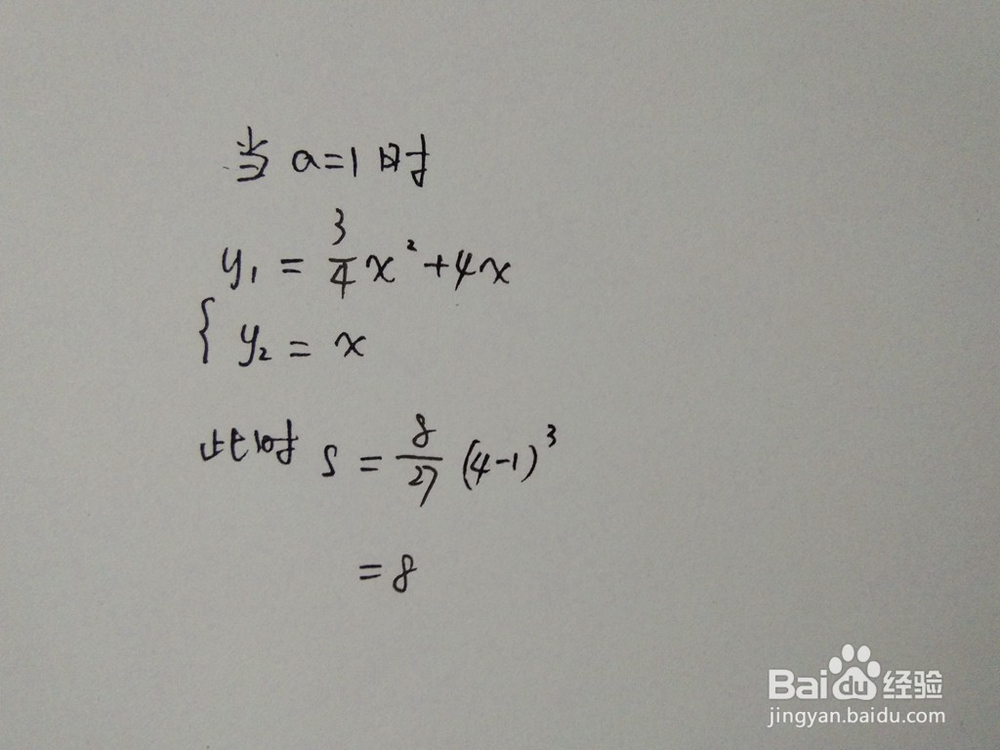 当 a=1 时
y₁ = 3/4 x² + 4x
{ y₂ = x
此时 S = 8/27 (4-1)³
= 8
Baidu 经验
jingyan.baidu.com